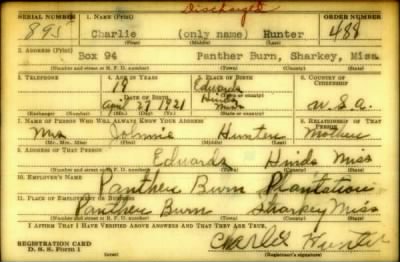 Discharged
SERIAL NUMBER 1. NAME (Print) ORDER NUMBER
895 Charlie (only name) Hunter 488
(First) (Middle) (Last)
2. ADDRESS (Print)
Box 94 Panther Burn, Sharkey, Miss.
(Number and street or R. F. D. number) (Town) (County) (State)
3. TELEPHONE 4. AGE IN YEARS 5. PLACE OF BIRTH 6. COUNTRY OF CITIZENSHIP
19 Edwards
DATE OF BIRTH Hinds (Town or county)
April 27 1921 Miss U.S.A.
(Exchange) (Number) (Mo.) (Day) (Yr.) (State or country)
7. NAME OF PERSON WHO WILL ALWAYS KNOW YOUR ADDRESS 8. RELATIONSHIP OF THAT PERSON
Mrs Johnnie Hunter Mother
(Mr., Mrs., Miss) (First) (Middle) (Last)
9. ADDRESS OF THAT PERSON
Edwards Hinds Miss
(Number and street or R. F. D. number) (Town) (County) (State)
10. EMPLOYER'S NAME
Panther Burn Plantation
11. PLACE OF EMPLOYMENT OR BUSINESS
Panther Burn Sharkey Miss
(Number and street or R. F. D. number) (Town) (County) (State)
I AFFIRM THAT I HAVE VERIFIED ABOVE ANSWERS AND THAT THEY ARE TRUE.
REGISTRATION CARD Charlie Hunter
D. S. S. Form 1 (over) (Registrant's signature)